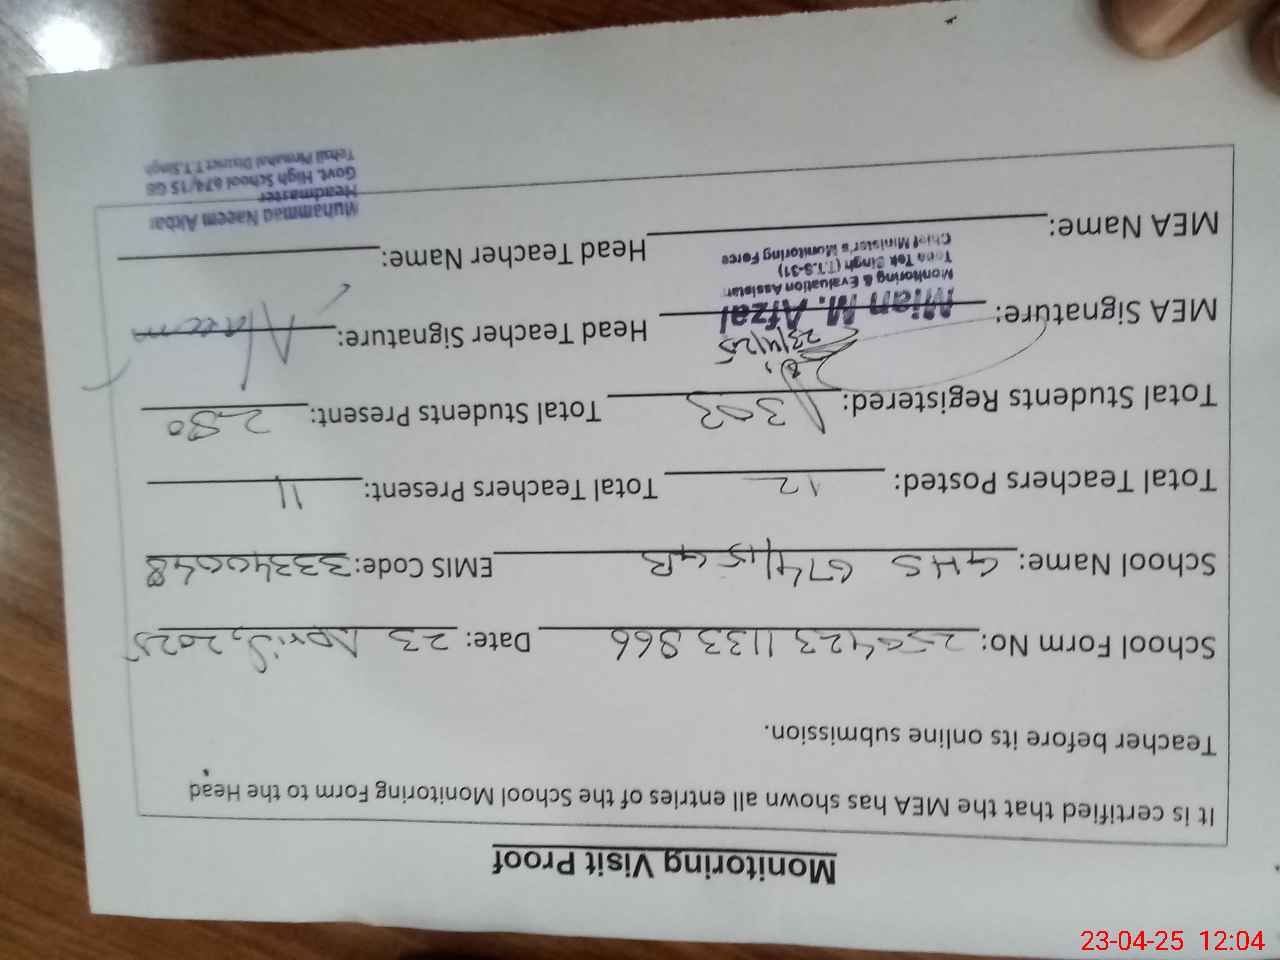 Monitoring Visit Proof
It is certified that the MEA has shown all entries of the School Monitoring Form to the Head
Teacher before its online submission.
School Form No: 250423 1133 866 Date: 23 April, 2025
School Name: GHS 674/15 GB EMIS Code: 33340048
Total Teachers Posted: 12 Total Teachers Present: 11
Total Students Registered: 303 Total Students Present: 280
23/4/25
MEA Signature: Head Teacher Signature: Naeem
Mian M. Afzal
Monitoring & Evaluation Assistant
Toba Tek Singh (T.T.S-31)
Chief Minister's Monitoring Force
MEA Name: Head Teacher Name:
Muhammad Naeem Akbar
Headmaster
Govt. High School 674/15 GB
Tehsil Pirmahal District T.T.Singh
23-04-25 12:04